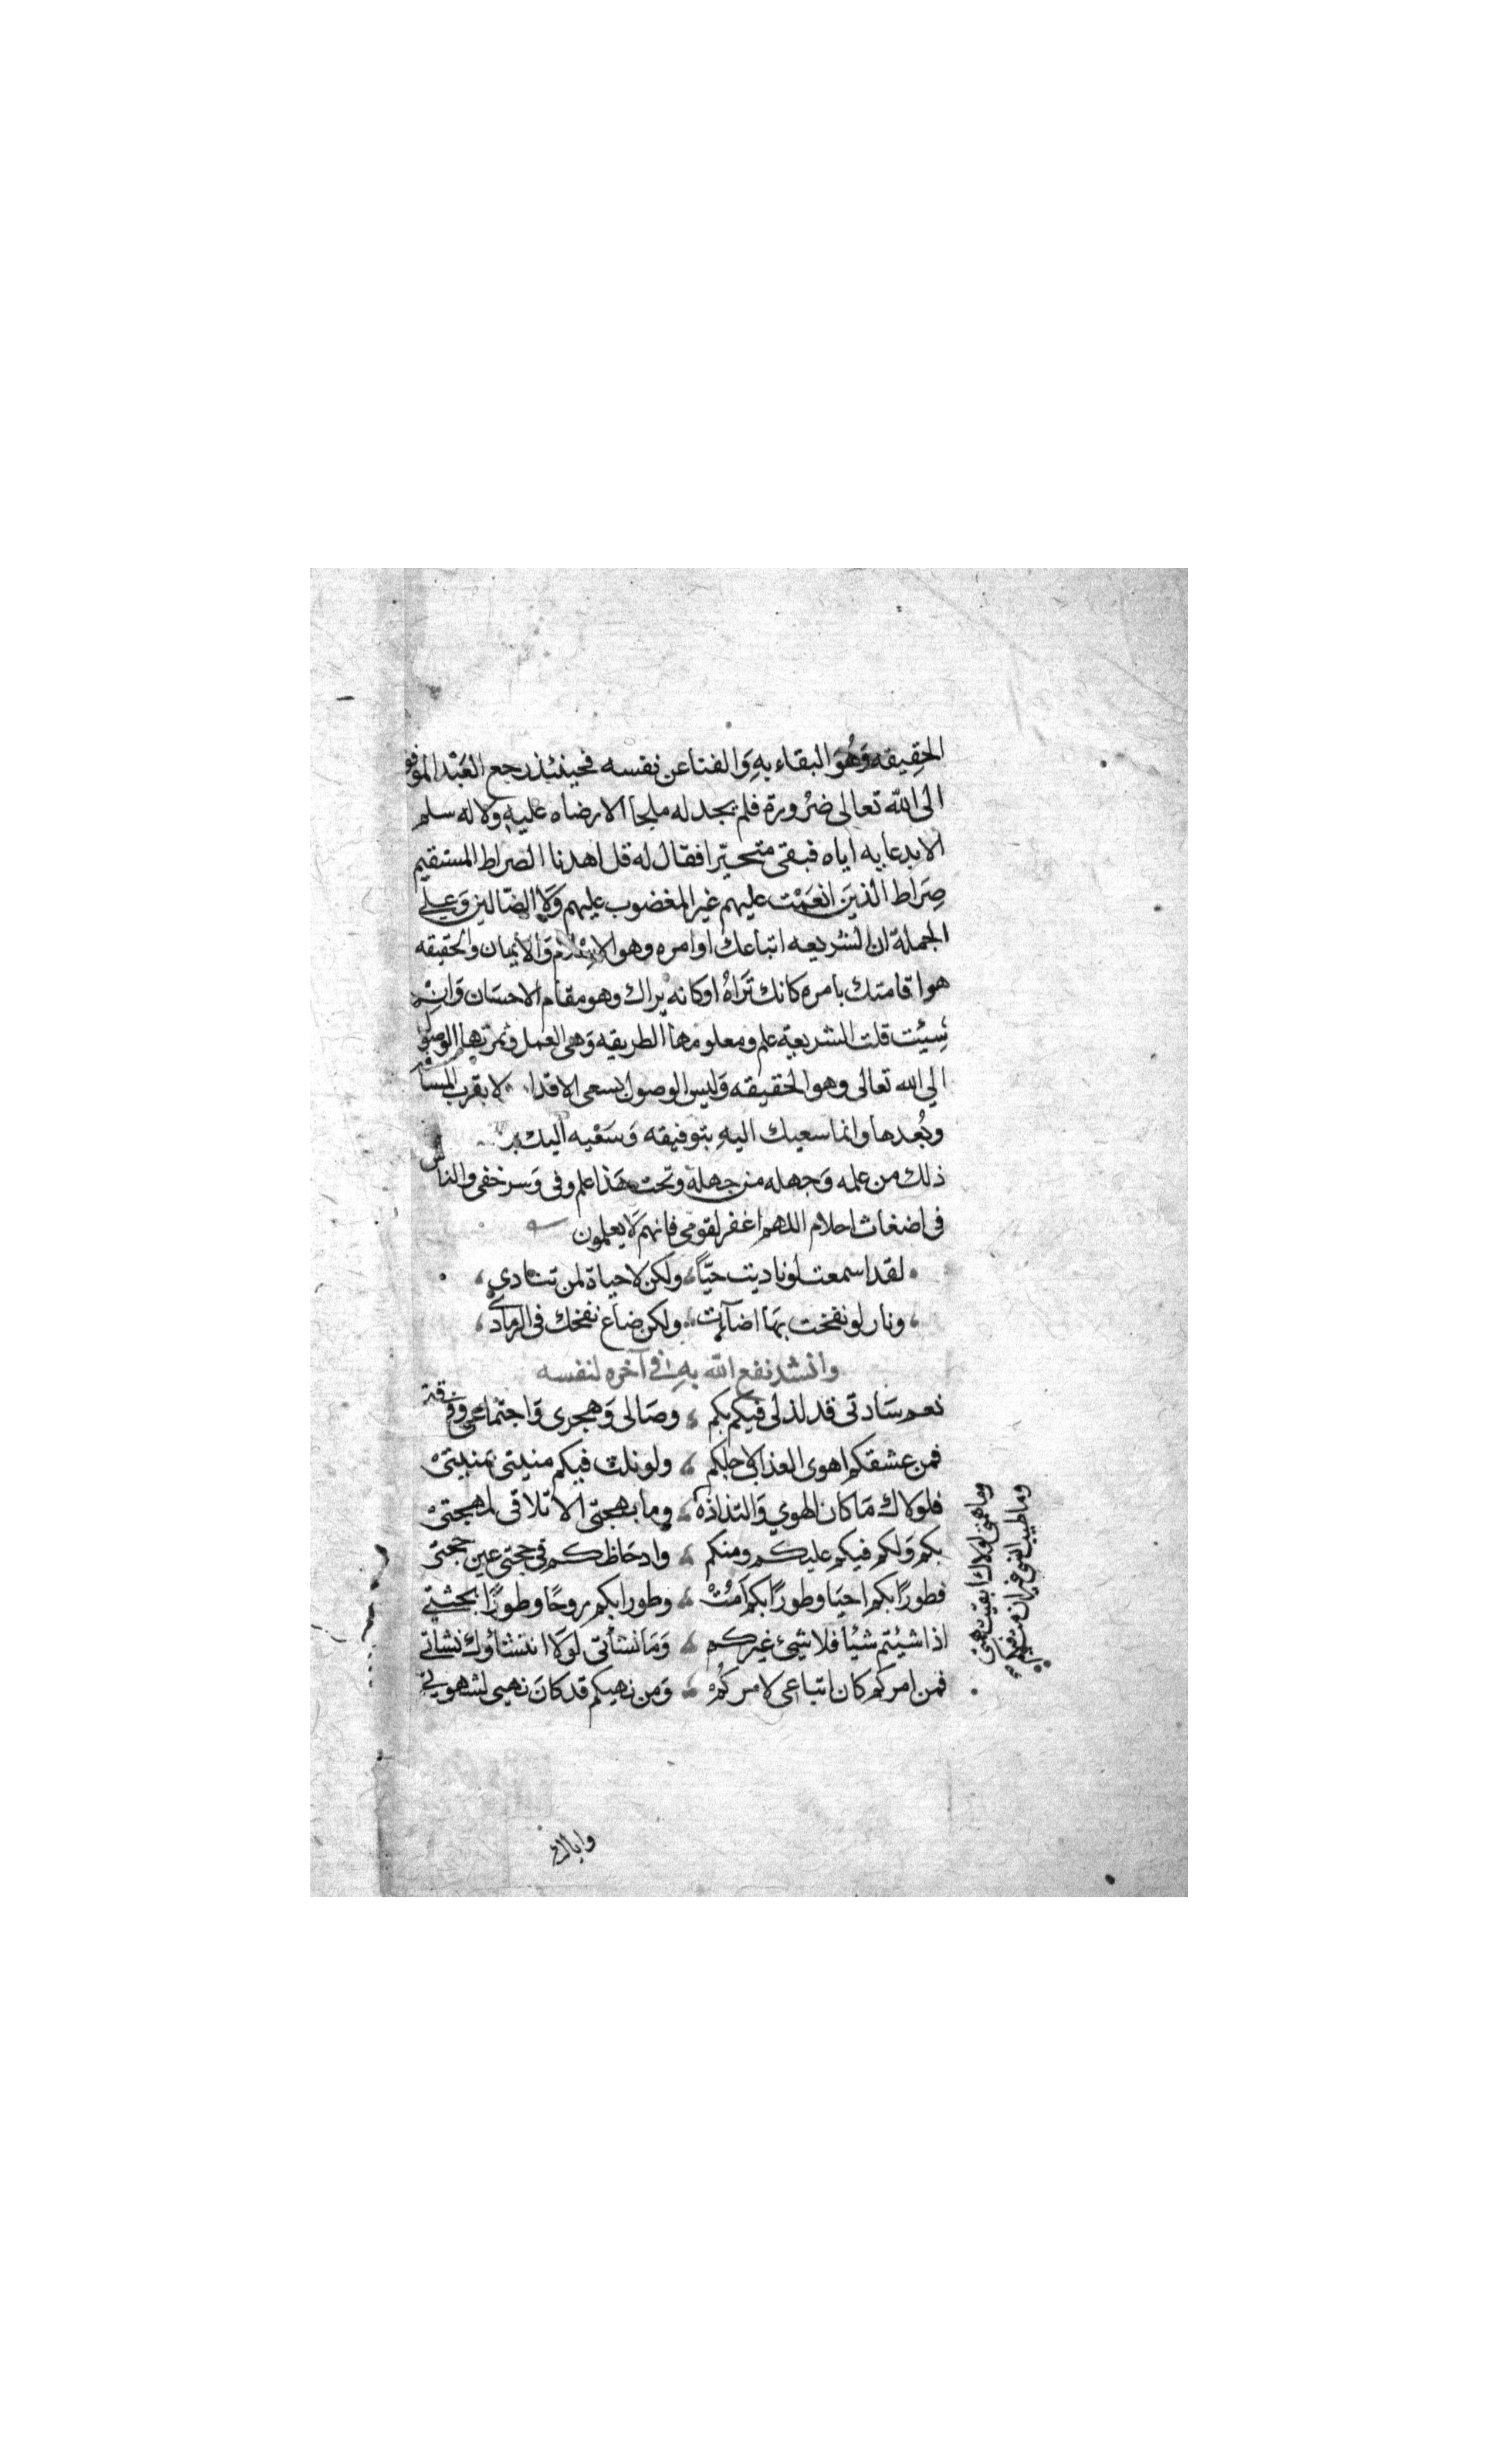 الحَقِيقه وَهُوَ البقاء بهِ وَالفنا عن نفسه فحينئذ رجع العَبْد الموفق
الى الله تعالى ضرُورة فلم يجد له ملجا الا رضاه عليهِ ولا له سلم
الا بدعايه اياه فبقى متحيّرا فقال له قل اهدنا الصراط المستقيم
صِرَاط الذينَ انعَمْت عليهم غير المغضوب عليهم وَلا الضّالين وَعلى
الجملة ان الشريعه اتباعك اوامره وهو الاسْلام وَالايمان والحقيقه
هو اقامتك بامره كانك تَرَاهُ او كانه يراك وهو مقام الاحسَان وَان
شِئت قلت الشريعة علم ومعلومها الطريقه وَهى العمل وثمرتها الوصول
الي الله تعالى وهو الحقيقه وَليس الوصول بسعى الاقدا لا بقرب المسافه
وبُعدها وانما سعيك اليهِ بتوفيقه وَسَعْيه اليك
ذلك من علمه وَجهله من جهله وتحت هَذا علم وفى وَسر خفى والناس
فى اضغاث احلام اللهم اغفر لقومى فانهم لَا يعلمون
لقد اسمعت لو ناديت حيّاً ولكن لا حياة لمن تنادى
ونار لو نفخت بهَا اضآءت ولكن ضاع نفخك فى الرمادى
وانشد نفع الله بهِ فى آخره لنفسه
نعم سَادتى قد لذ لى فيكم بكم وصَالى وَهجرى وَاجتماعى وفرقتى
فمن عشقكم اهوى العذاب لاجلكم ولو نلت فيكم منيتى بمنيتىْ
فلولاك مَا كان الهوي وَالتذاذه وما بهجتى الا تلاقى لمهجتىْ
بكم وَلكم فيكم عليكم ومنكم وادحَاظكم فى حجتى عين حجتى
فطورًا بكم احيَا وطورًا بكم اَمُتْ وطورا بكم روحًا وطورًا بجثتى
اذا شيئتم شيئا فلا شيئ غيركم وَمَا نشأتى لوَلا انتشاؤك نشاتى
فمن امركم كان اتباعى لامركمْ وَمن نهيكم قد كانَ نهيى لشهوتى
وما همتى لولاك ابقيت همتى
وما طيب
واياك